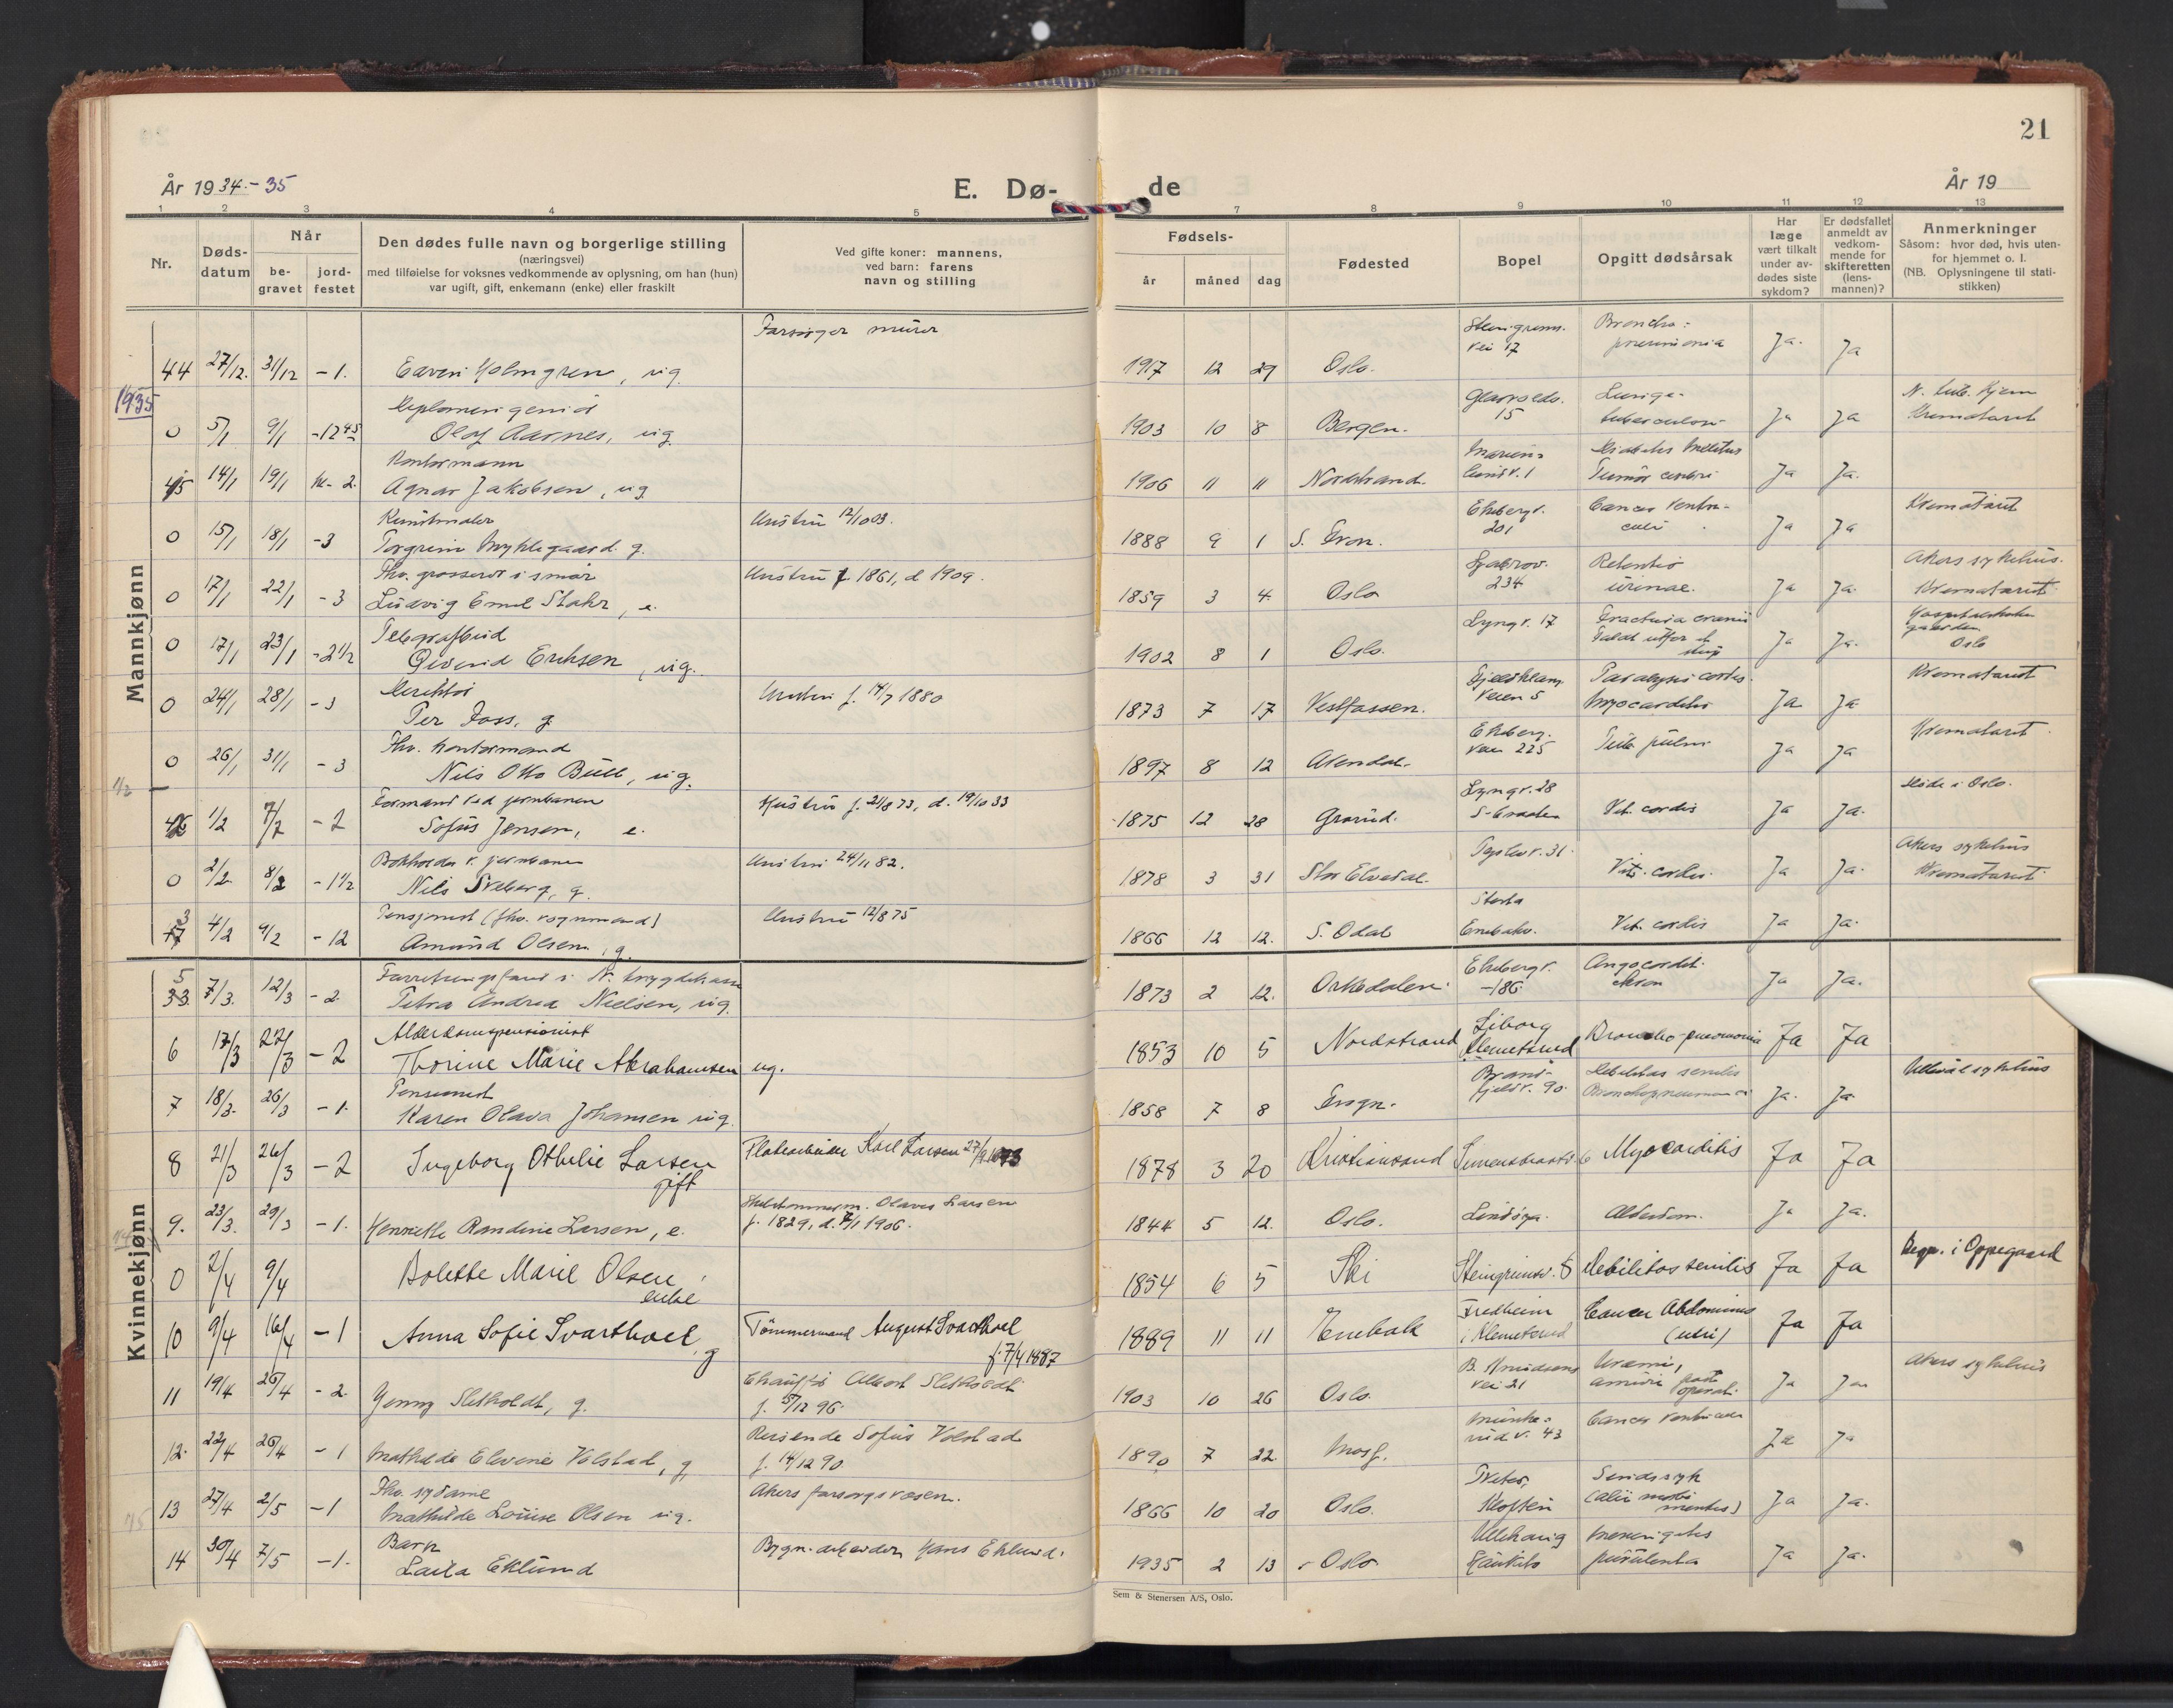 21
År 1934.-35
E. Dø-
de
År 19
1 2 3 4 5 7 8 9 10 11 12 13
Nr.
Døds-
datum
Når
be-
gravet
jord-
festet
Den dødes fulle navn og borgerlige stilling
(næringsvei)
med tilføielse for voksnes vedkommende av oplysning, om han (hun)
var ugift, gift, enkemann (enke) eller fraskilt
Ved gifte koner: mannens,
ved barn: farens
navn og stilling
Fødsels-
år måned dag
Fødested
Bopel
Opgitt dødsårsak
Har
læge
vært tilkalt
under av-
dødes siste
sykdom?
Er dødsfallet
anmeldt av
vedkom-
mende for
skifteretten
(lens-
mannen)?
Anmerkninger
Såsom: hvor død, hvis uten-
for hjemmet o. l.
(NB. Oplysningene til stati-
stikken)
Mannkjønn
murer
44 27/12. 31/12 -1. Holmgren, ug. 1917 12 29 Oslo. vei 17 Broncho- pneumonia Ja. Ja
1935
0 5/1 9/1 -12 45 Olaf Aarnes, ug. 1903 10 8 Bergen. 15 Lunge- tuberculose Ja Ja Krematoriet
45 14/1 19/1 kl. 2. Kontormann
Agnar Jakobsen, ug 1906 11 11 Nordstrand. Diabetes Mellitus Tumor cerebri Ja Ja.
0 15/1 18/1 -3 Kunstmaler
Torgrim Myklegaard. g. Hustru 12/10 03. 1888 9 1 S. Fron. Ekebergv. 201 Cancer ventri- culi Ja Ja Krematoriet
0 17/1 22/1 -3 Fhv. grosserer i smør
Ludvig Emil Stahr, e. Hustru f. 1861, d 1909. 1859 3 4. Oslo Ljabrov. 234 Retentio urinae. Ja Ja. Akers sykehus. Krematoriet.
0 17/1 23/1 -2 1/2 Telegrafbud
Eriksen, ug. 1902 8 1 Oslo. Lyngv. 17 Fractura cranii Ja Ja. Oslo
0 24/1 28/1 -3 Direktør
Per g. Hustru f. 14/7 1880 1873 7 17 Vestfossen. veien 5 Paralysis cordis. Myocarditis Ja Ja Krematoriet
0 26/1 31/1 -3 Fhv. kontormand
Nils Otto Bull, ug. 1897 8 12 Arendal. Ekeberg- veien 225 Tub. pulm. Ja Ja Krematoriet.
1/2
46 1/2 7/2 -2 Formand ved jernbanen
Sofus Jensen, e. Hustru f. 21/8 73, d. 19/10 33 1875 12 28 Grorud. Lyngv. 28 Vit. cordis Ja Ja. Døde i Oslo.
0 2/2. 8/2 -1 1/2 Bokholder v. jernbanen
Nils Sveberg, g. Hustru 24/11 82. 1878 3 31 Stor Elvedal. 31. Vit. cordis. Ja Ja. Akers sykehus Krematoriet.
3 4/2 9/2 -12 Pensjonist (fhv. vognmand)
Amund Olsen, g. Hustru 12/8 75 1866 12 12. S. Odal Enebakv. Vit. cordis Ja Ja.
Kvinnekjønn
5 33 7/3. 12/3 -2.
Petra Andrea Nielsen, ug. 1873 2 12. Orkedalen. Ekebergv. -186. Ja Ja.
6 17/3 22/3 -2 Alderdomspensionist
Thorine Marie Abrahamsen ug. 1853 10 5 Nordstrand Liborg Klemetsrud Broncho-pneumonia Ja Ja
7 18/3. 26/3 -1. Pensionist
Karen Olava Johansen ug. 1858 7 8 90. Debilitas senilis Bronchopneumonia Ja. Ja Ullevål sykehus
8 21/3 26/3 -2 Ingeborg Othilie Larsen
gift Platearbeider Karl Larsen 1878 3 20 Kristiansand Myocarditis Ja Ja
9. 23/3. 29/3 -1. Henriette Randine Larsen, e. Olaves Larsen
f. 1829, d. 7/1 1906. 1844 5 12. Oslo. Lindøya. Alderdom. Ja Ja.
0 2/4 9/4 Bolette Marie Olsen
enke 1854 6 5 Ski Steingrimsv. 8 Debilitas senilis Ja Ja Begr. i Oppegaard
10 9/4 16/4 -1 Anna Sofie Svarthoel, g Tømmermand August Svarthoel
f. 7/4 1887 1889 11 11 Enebak Fredheim i Klemetsrud Cancer Abdominis (uteri) Ja Ja
11 19/4 26/4 -2. Jenny Sletholdt, g. Chauffør Albert Sletholdt
f. 5/12 96. 1903 10 26 Oslo. B. Knudsens vei 21 Uræmi, Ja Ja Akers sykehus
12. 22/4 26/4 -1 Mathilde Elevine Volstad, g, Reisende Sofus Volstad
f. 14/12 90. 1890 7 22 v. 43 Cancer ventriculi Ja Ja
13 27/4 2/5 -1 Fhv. sydame
Mathilde Louise Olsen ug. Akers forsorgsvesen. 1866 10 20 Oslo. Sindssyk Ja Ja.
14 30/4 7/5 -1. Barn
Laila Eklund Bygn. arbeider Hans Eklund. 1935 2 13 Oslo. Meningitis purulenta Ja Ja.
Sem & Stenersen A/S, Oslo.